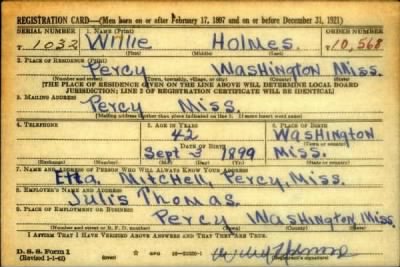 REGISTRATION CARD—(Men born on or after February 17, 1897 and on or before December 31, 1921)
SERIAL NUMBER 1. NAME (Print) ORDER NUMBER
T 1032 Willie Holmes. T 10,568
(First) (Middle) (Last)
2. PLACE OF RESIDENCE (Print)
Percy Washington Miss.
(Number and street) (Town, township, village, or city) (County) (State)
[THE PLACE OF RESIDENCE GIVEN ON THE LINE ABOVE WILL DETERMINE LOCAL BOARD
JURISDICTION; LINE 2 OF REGISTRATION CERTIFICATE WILL BE IDENTICAL]
3. MAILING ADDRESS
Percy Miss.
[Mailing address if other than place indicated on line 2. If same insert word same]
4. TELEPHONE 5. AGE IN YEARS 6. PLACE OF BIRTH
42 Washington
DATE OF BIRTH (Town or county)
Sept 3 1899 Miss.
(Exchange) (Number) (Mo.) (Day) (Yr.) (State or country)
7. NAME AND ADDRESS OF PERSON WHO WILL ALWAYS KNOW YOUR ADDRESS
Etta Mitchell, Percy, Miss.
8. EMPLOYER'S NAME AND ADDRESS
Julis Thomas.
9. PLACE OF EMPLOYMENT OR BUSINESS
Percy Washington Miss.
(Number and street or R. F. D. number) (Town) (County) (State)
I AFFIRM THAT I HAVE VERIFIED ABOVE ANSWERS AND THAT THEY ARE TRUE.
D. S. S. Form 1
(Revised 1-1-42)